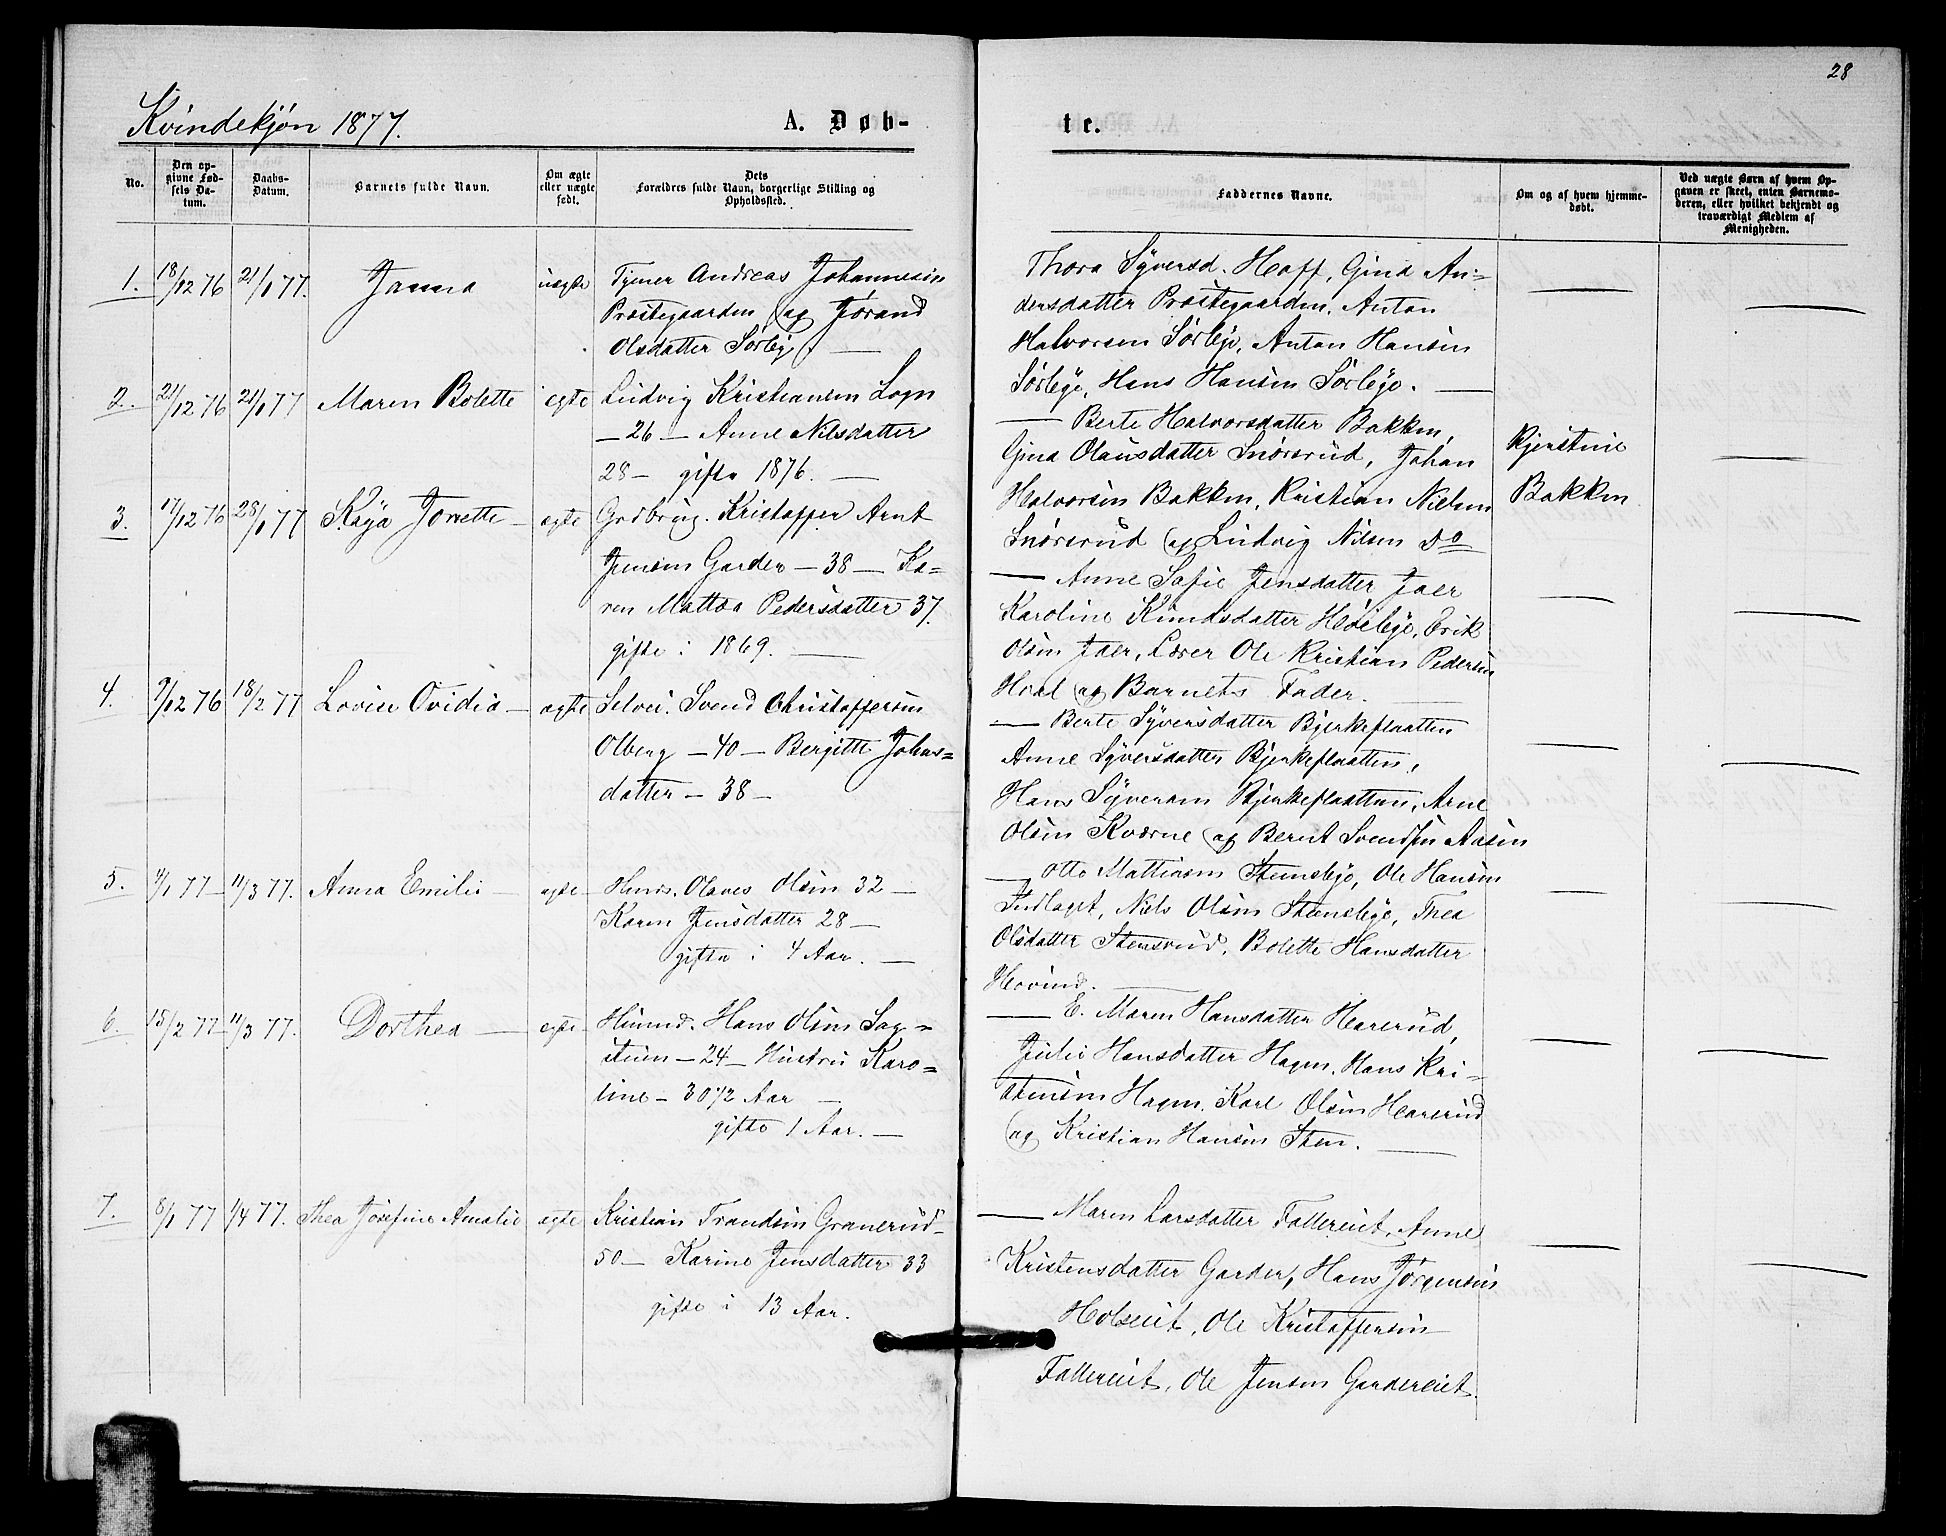 28
Kvindekjøn 1877.
A. Døb-
te.
No.
Den op-
givne Fød-
sels Da-
tum.
Daabs-
Datum.
Barnets fulde Navn.
Om ægte
eller uægte
født.
Dets
Forældres fulde Navn, borgerlige Stilling og
Opholdssted.
Faddernes Navne.
Om og af hvem hjemme-
døbt.
Ved uægte Børn af hvem Op-
gaven er skeet, enten Barnemo-
deren, eller hvilket bekjendt og
troværdigt Medlem af
Menigheden.
1. 18/12 76 21/1 77. uægte
Andreas Johannesen
Præstegaarden og Jørand
Olsdatter Sørby.
Thora Syversd. Hoff, Gina An-
dersdatter Præstegaarden, Anton
Halvorsen Sørbye, Anton Hansen
Sørbye, Hans Hansen Sørbye.
2. 21/12 76 21/1 77 Maren Bolette egte
Ludvig Kristiansen Sogn
— 26 — Anne Nilsdatter
28 — gifte 1876. —
— Berte Halvorsdatter Bakken,
Gina Olausdatter Snørsrud, Johan
Halvorsen Bakken, Kristian Nielsen
Snørsrud og Ludvig Nilsen Do
Kjerstine
Bakken
3. 17/12 76 28/1 77 Kaja Jonette — ægte
Grdbrug. Kristoffer Arnt
Jensen Garder — 38 — Ka-
ren Mattea Pedersdatter 37.
gifte i 1869. —
— Anne Sofie Jensdatter Jaer
Karoline Knudsdatter Huseby, Erik
Olsen Jaer, Lærer Ole Kristian Pedersen
Hoel og Barnets Fader.
4. 9/12 76 18/2 77 Lovise Ovidia — ægte
Selvei. Svend Christoffersen
Olberg — 40 — Bergitte Johns-
datter — 38 —
— Berte Syversdatter Bjerkeflaatten
Anne Syversdatter Bjerkeflaatten,
Hans Syversen Bjerkeflaatten, Arne
Olsen Kværne og Bernt Svendsen Aasen
5. 4/1 77 — 11/3 77. Anna Emilie — ægte
Husm. Olaves Olsen 32 —
Karen Jensdatter 28 —
gifte i 4 Aar. —
— Otto Mattiasen Stensbye, Ole Hansen
Indlaget, Niels Olsen Stensbye, Thea
Olsdatter Stensrud, Bolette Hansdatter
Hovind.
6. 15/2 77 11/3 77. Dorthea — egte
Husmd. Hans Olsen Sag-
stuen — 24 — Hustru Karo-
line — 30 1/2 Aar —
gifte 1 Aar. —
— E. Maren Hansdatter Harerud,
Julie Hansdatter Hagen, Hans Kri-
stensen Hagen, Karl Olsen Harerud
og Kristian Hansen Sten.
7. 8/1 77 1/4 77. Thea Josefine Amalie ægte
Kristian Trondsen Granerud
50 — Karine Jensdatter 33
gifte i 13 Aar.
— Maren Larsdatter Fallereiet, Anne
Kristensdatter Garder, Hans Jørgensen
Holseiet, Ole Kristoffersen
Fallereiet, Ole Jensen Gardereiet.